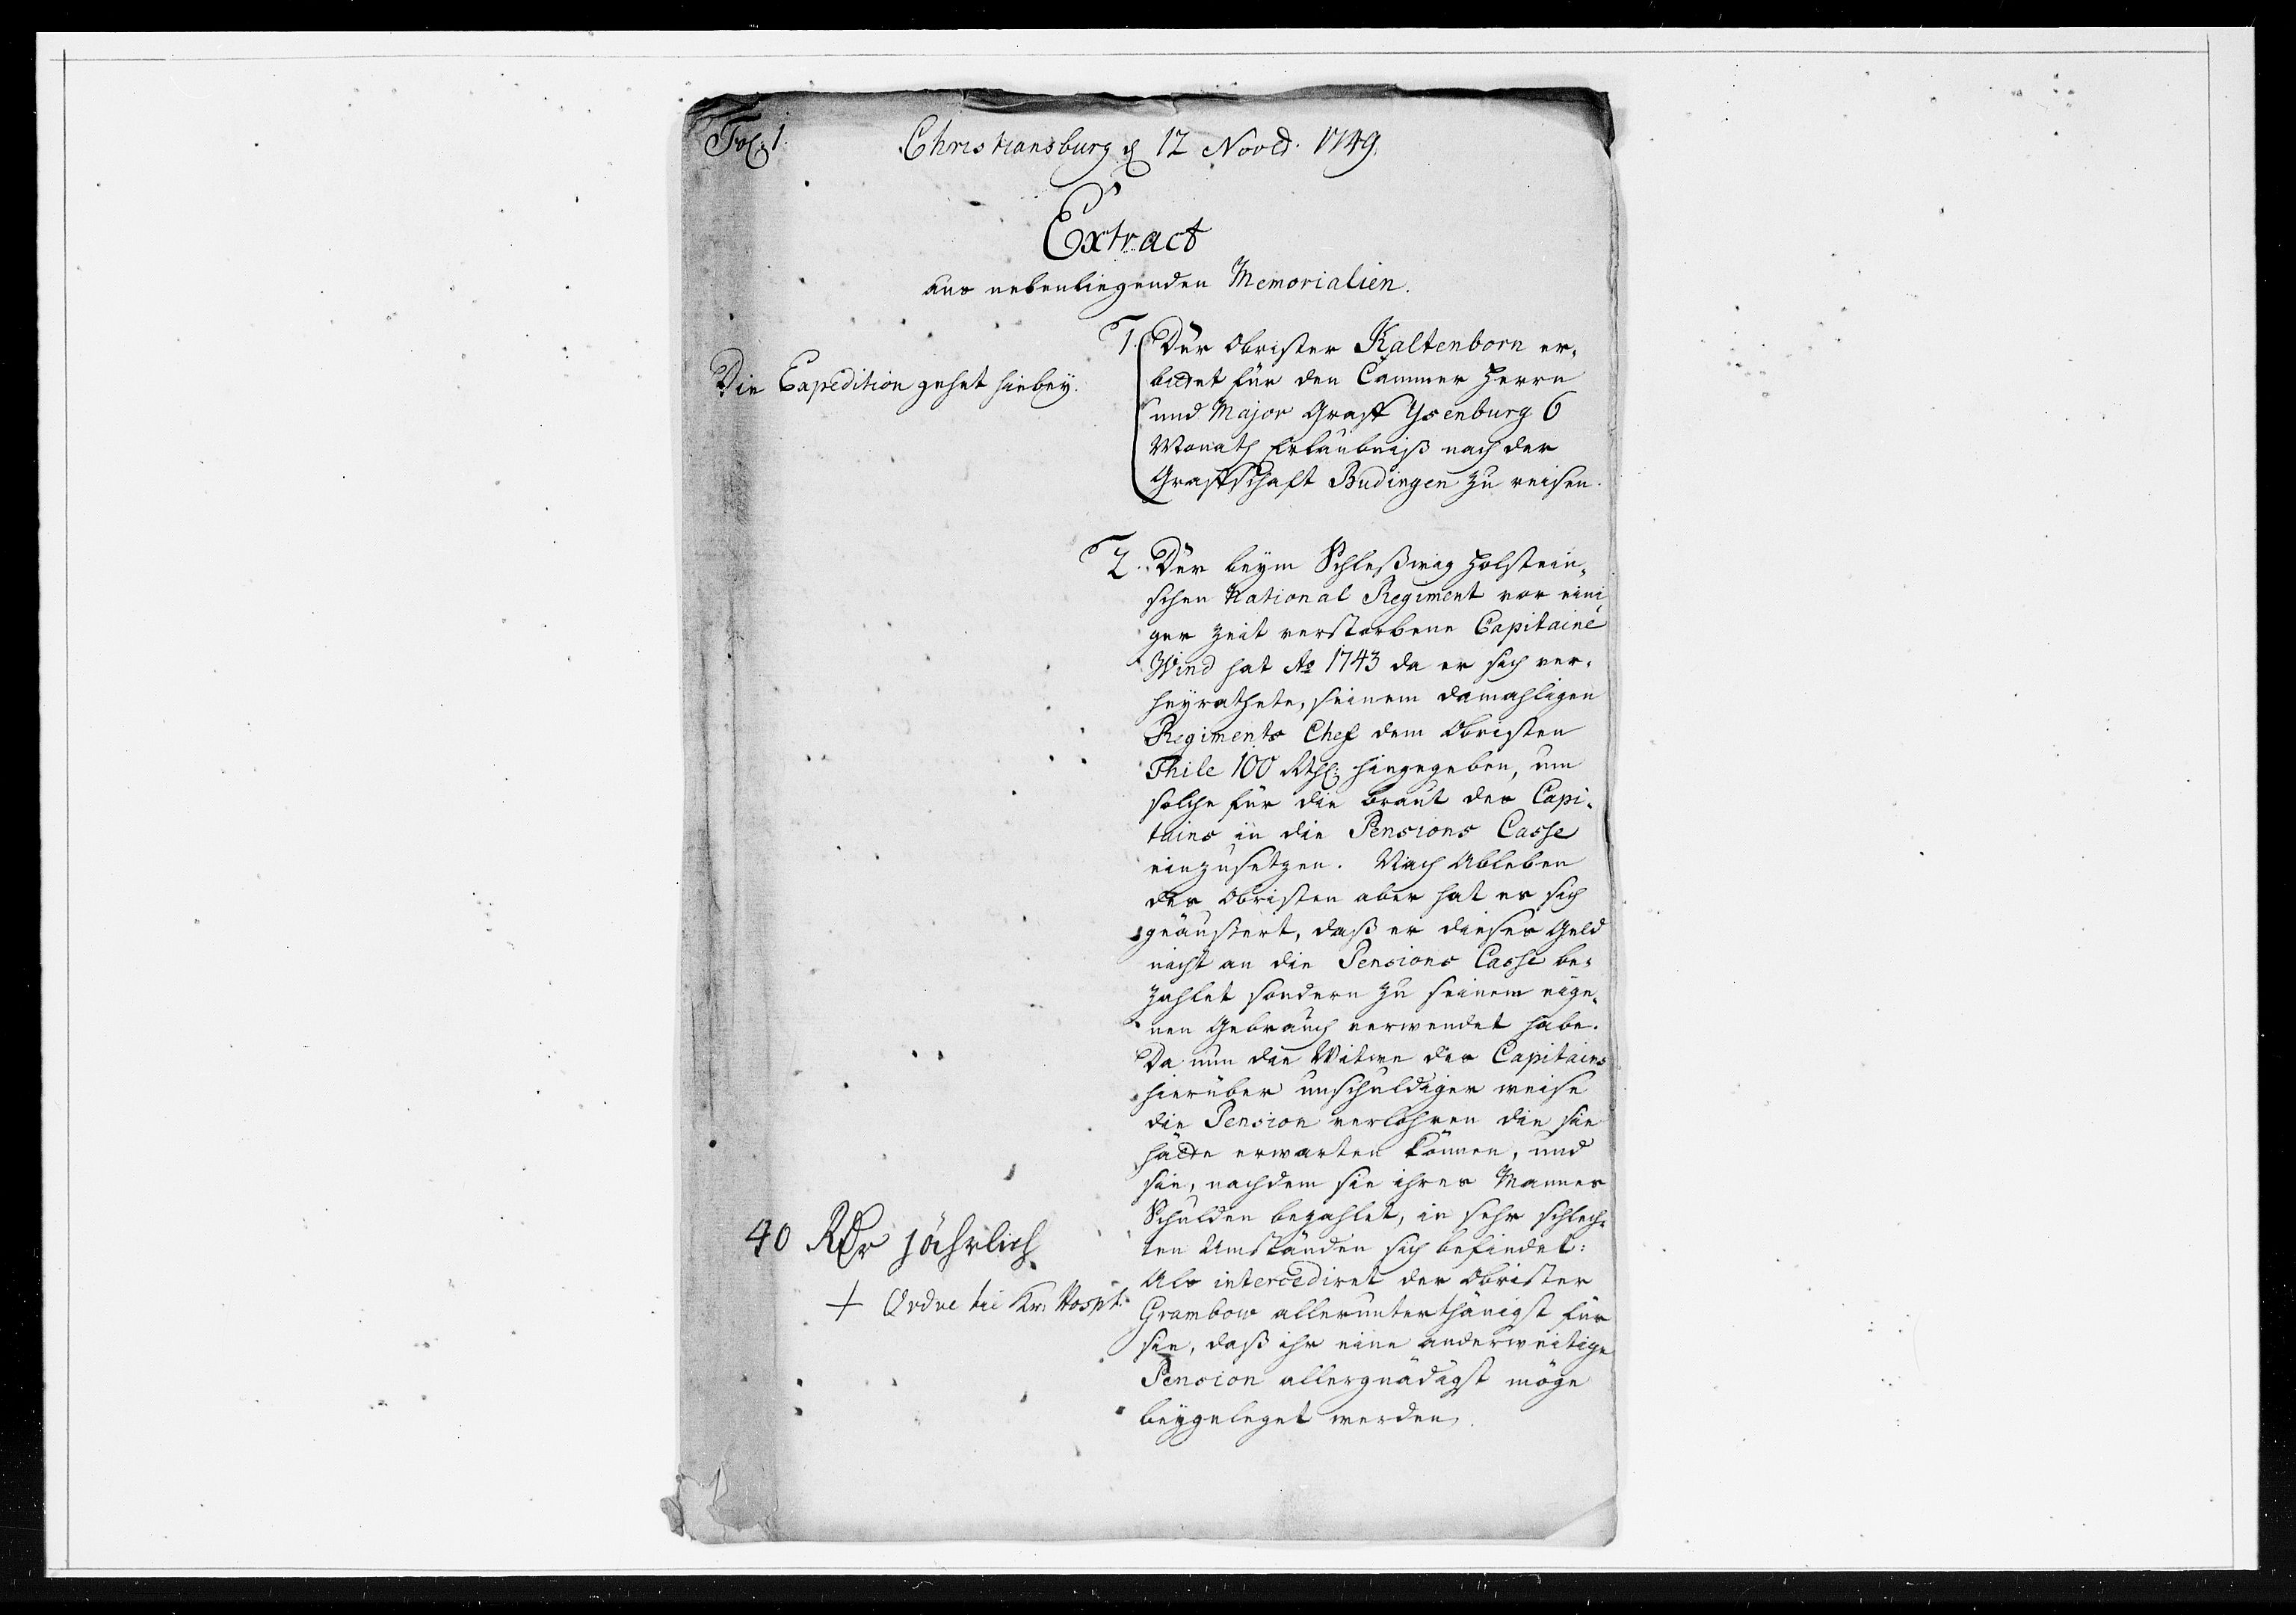 Fol: 1.
Christiansburg d 12 Novb. 1749.
Extract
aus nebenliegenden Memorialien.
Die Expedition gehet hiebey.
1. Der Obrister Kaltenborn er-
bittet für den Cammer Herrn
und Major Graff Ysenburg 6
Monath Erlaubniß nach der
Graffschafft Budingen zu reisen.
2. Der beym Schleßwig Holstein-
schen National Regiment vor eini-
ger Zeit verstorbene Capitaine
Wind hat Ao 1743 da er sich ver-
heyrathete, seinem damahligen
Regiments Chef dem Obristen
Thile 100 Rthl: hingegeben, um
solche für die Braut des Capi-
tains in die Pensions Casse
einzusetzen. Nach Ableben
des Obristen aber hat es sich
geäussert, daß er dieses Geld
nicht an die Pensions Casse be-
zahlet sondern zu seinem eige-
nen Gebrauch verwendet habe.
Da nun die Witwe des Capitains
hierüber unschuldiger weise
die Pension verlohren die sie
hätte erwarten können, und
sie, nachdem sie ihres Mannes
Schulden bezahlet, in sehr schlech-
ten Umständen sich befindet:
Als intercediret der Obrister
Grambow allerunterthänigst für
sie, daß ihr eine anderweitige
Pension allergnädigst möge
beygeleget werden.
40 Rdr jährlich
+ Ordre til Kr: Hospt: